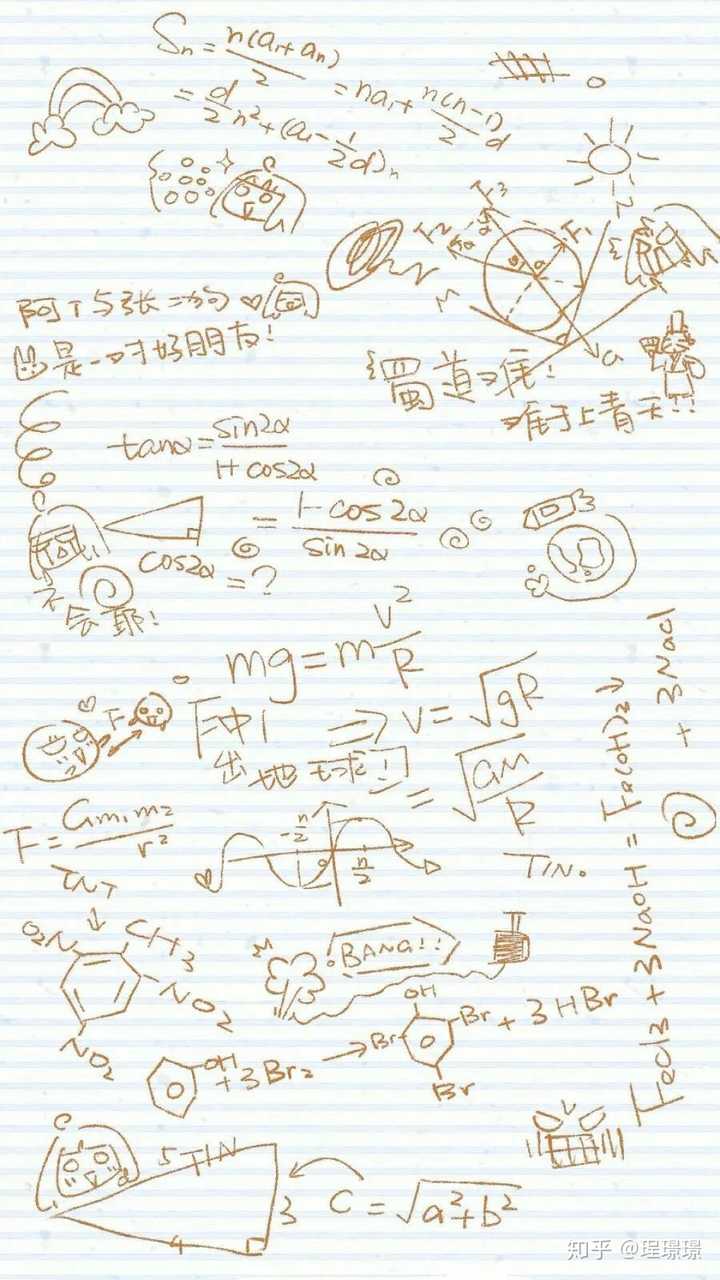 Sn = n(a₁+an)/2 = na₁ + n(n-1)/2 d
= d/2 n² + (a₁ - 1/2 d)n
F3
F2
F1
阿T与张二狗
是一对好朋友!
蜀道难!
难于上青天!!
tanα = sin2α/1+cos2α
= 1-cos2α/sin2α
cos2α = ?
不会耶!
mg = m v²/R
F中!
⇒ v = √gR
出地球!
= √GM/R
F
F = Gm₁m₂/r²
-π/2
0
π/2
TIN。
TNT
O₂N
CH3
NO2
NO2
BANG!!
OH
+3Br₂
OH
Br
Br
Br
+ 3HBr
FeCl3 + 3NaOH = Fe(OH)₂↓ + 3NaCl
5 TIN
3
4
C = √a²+b²
知乎 @珵璟璟